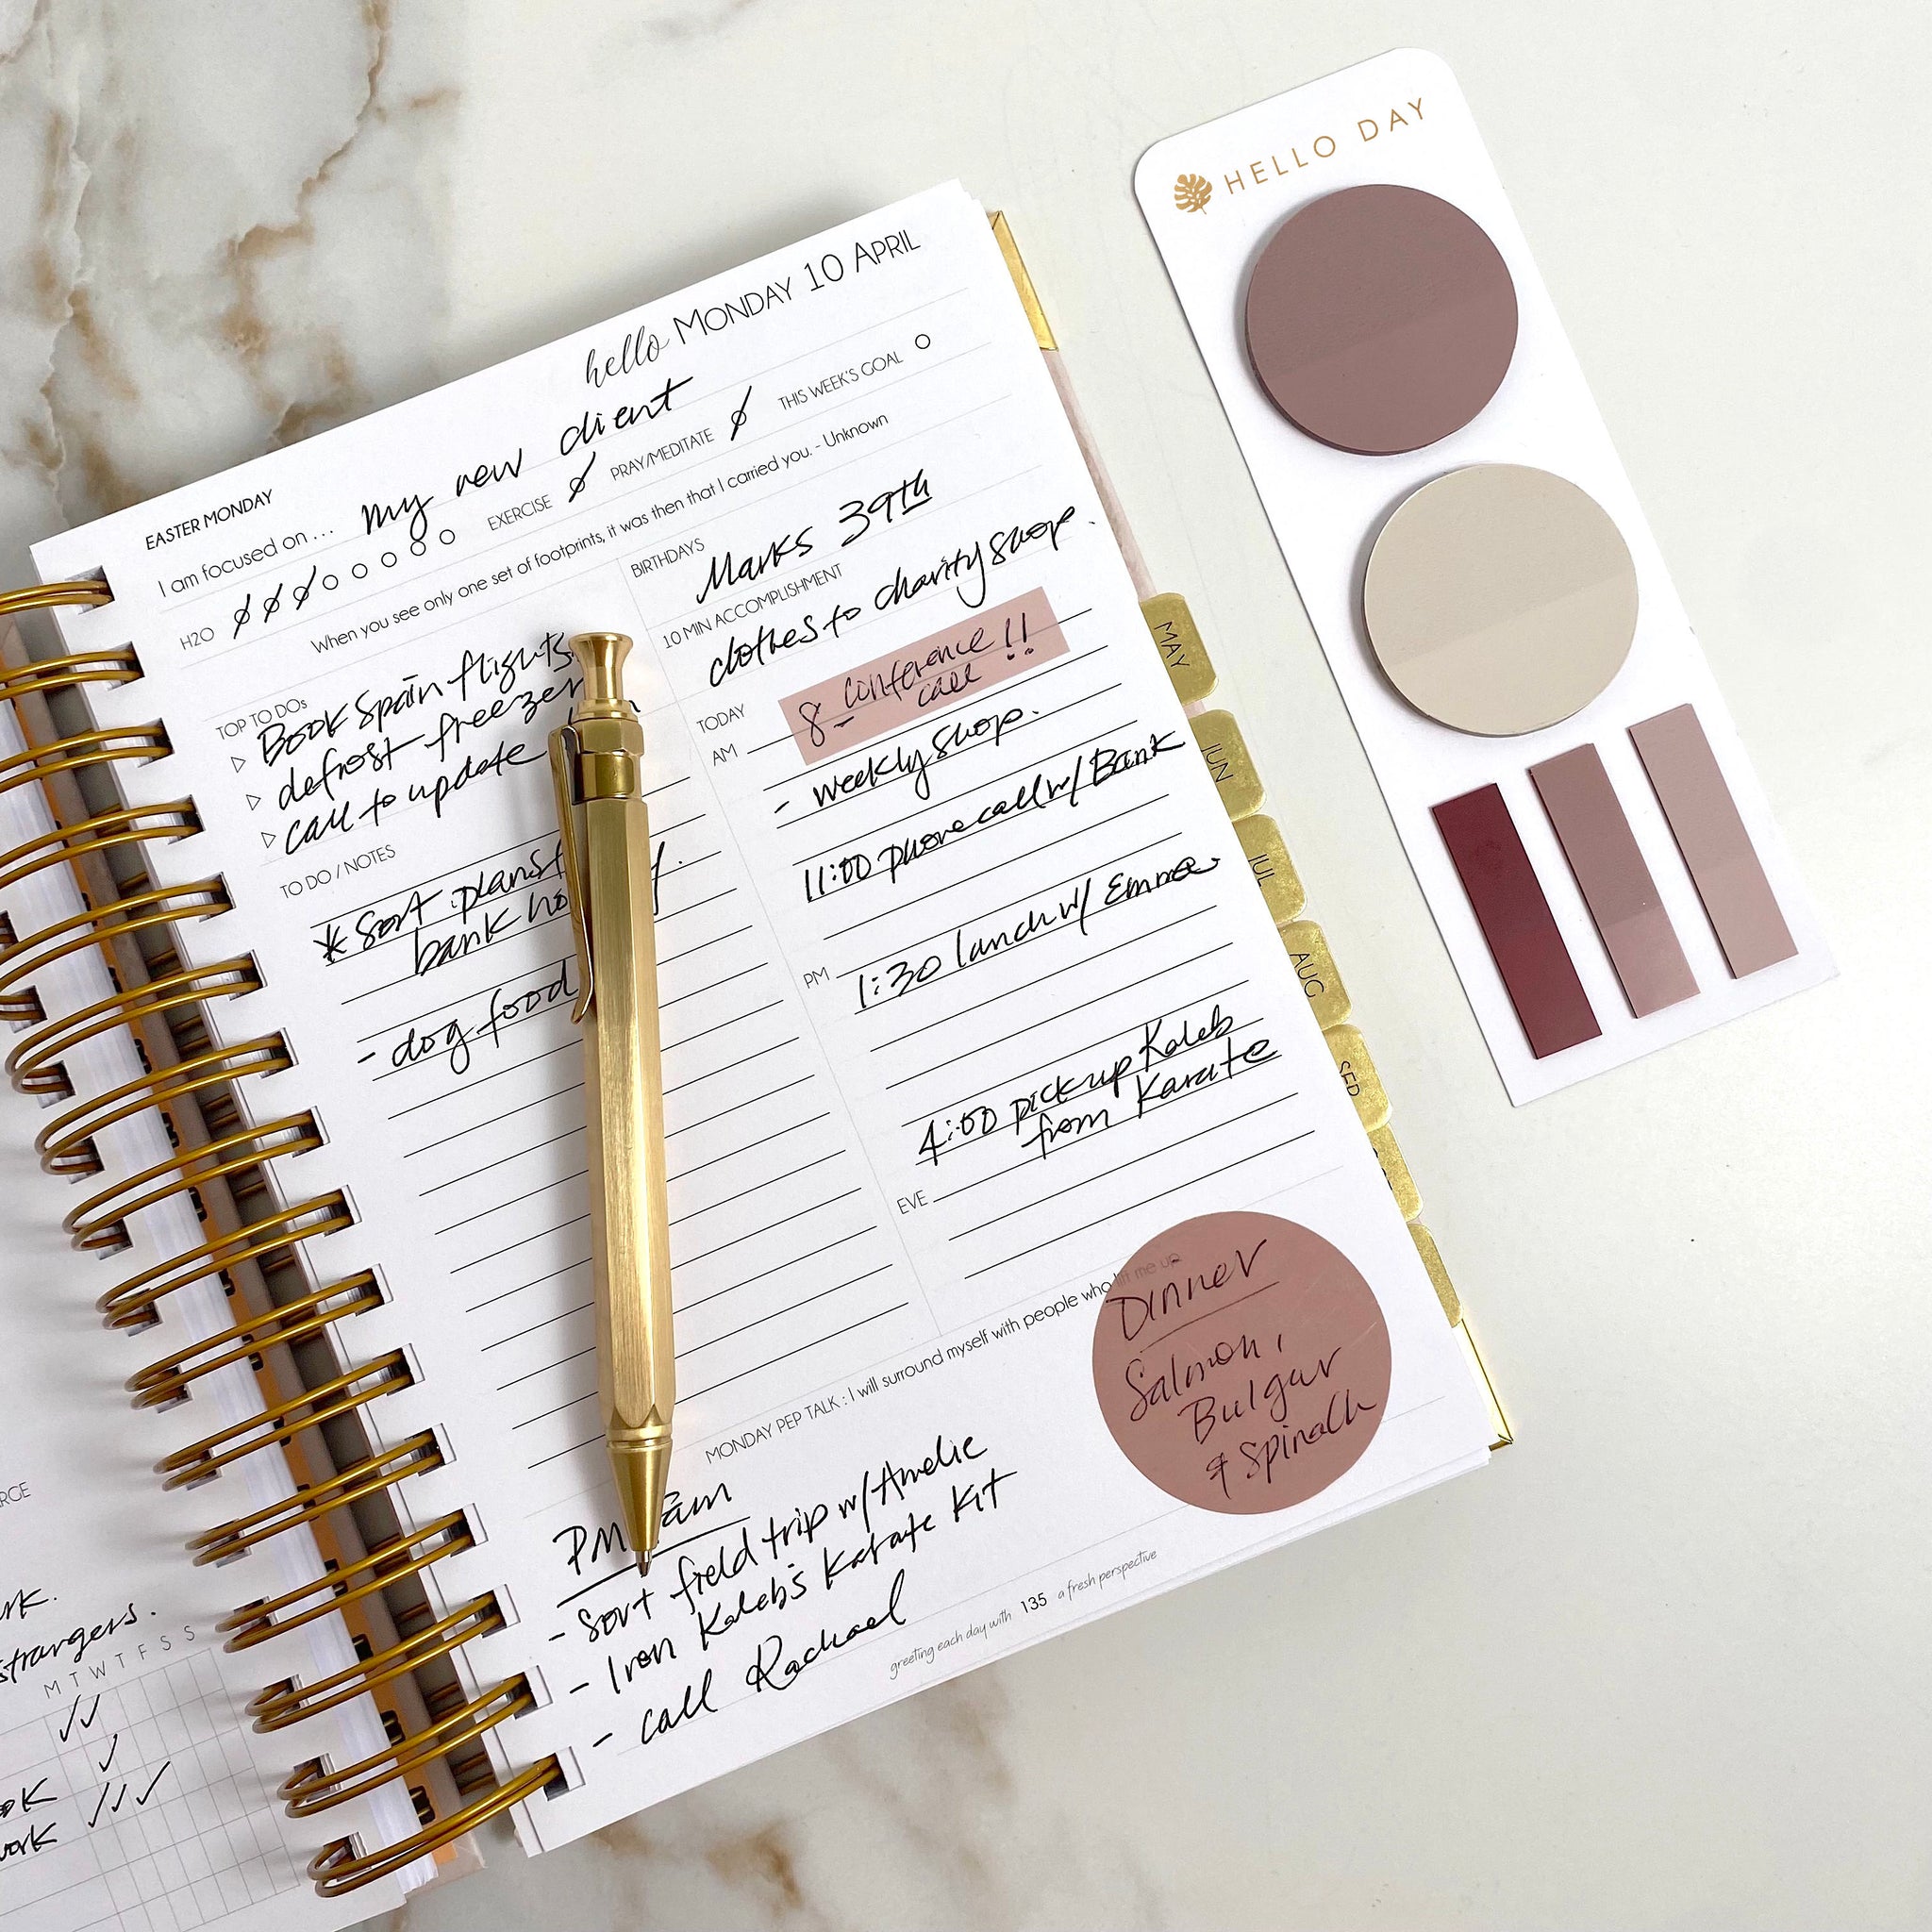 hello MONDAY 10 APRIL
EASTER MONDAY
I am focused on ... my new client
H2O EXERCISE PRAY/MEDITATE THIS WEEK'S GOAL
When you see only one set of footprints, it was then that I carried you. - Unknown
TOP TO DOs
Book Spain flights
defrost freezer
call to update
TO DO / NOTES
* Sort plans
bank
- dog food
BIRTHDAYS
Marks 39th
10 MIN ACCOMPLISHMENT
clothes to charity shop.
TODAY
AM
8 - conference !!
call
- weekly shop.
11:00 phone call w/ Bank
PM
1:30 lunch w/ Emma
4:00 pick up Kaleb
from Karate
EVE
MONDAY PEP TALK : I will surround myself with people who lift me up
Dinner
Salmon,
Bulgur
& Spinach
- Sort field trip w/ Amelie
- Iron Kaleb's Karate Kit
- call Rachael
greeting each day with 135 a fresh perspective
MAY
JUN
JUL
AUG
SEP
HELLO DAY
strangers.
M T W T F S S